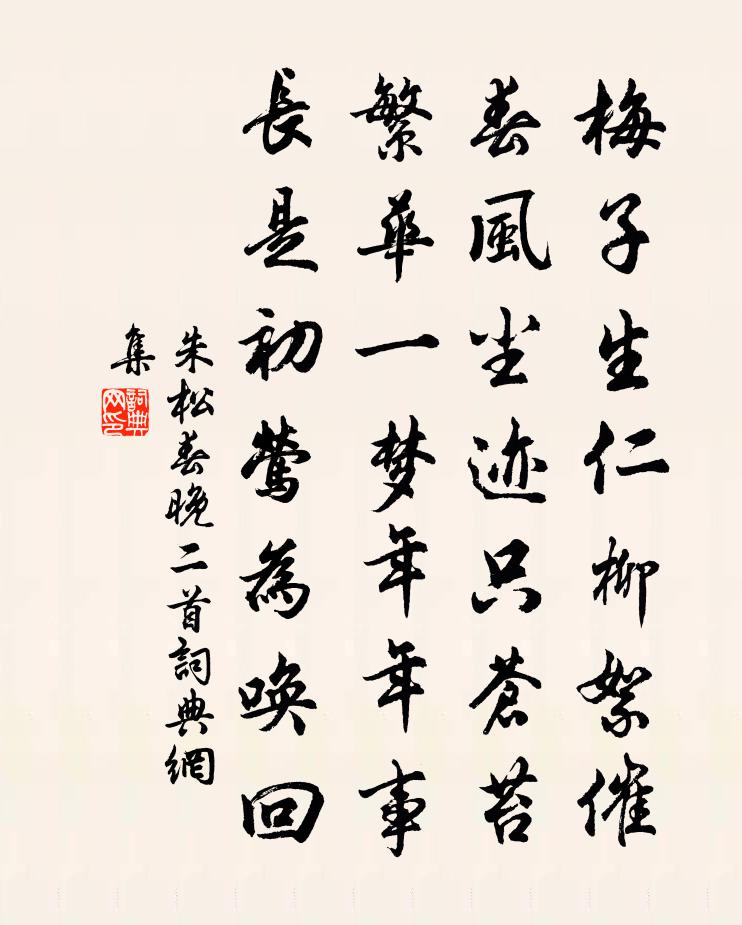 梅子生仁柳絮催
春風尘迹只蒼苔
繁華一梦年年事
長是初莺為唤回
朱松春晚二首詞典網
集
詞典
网印